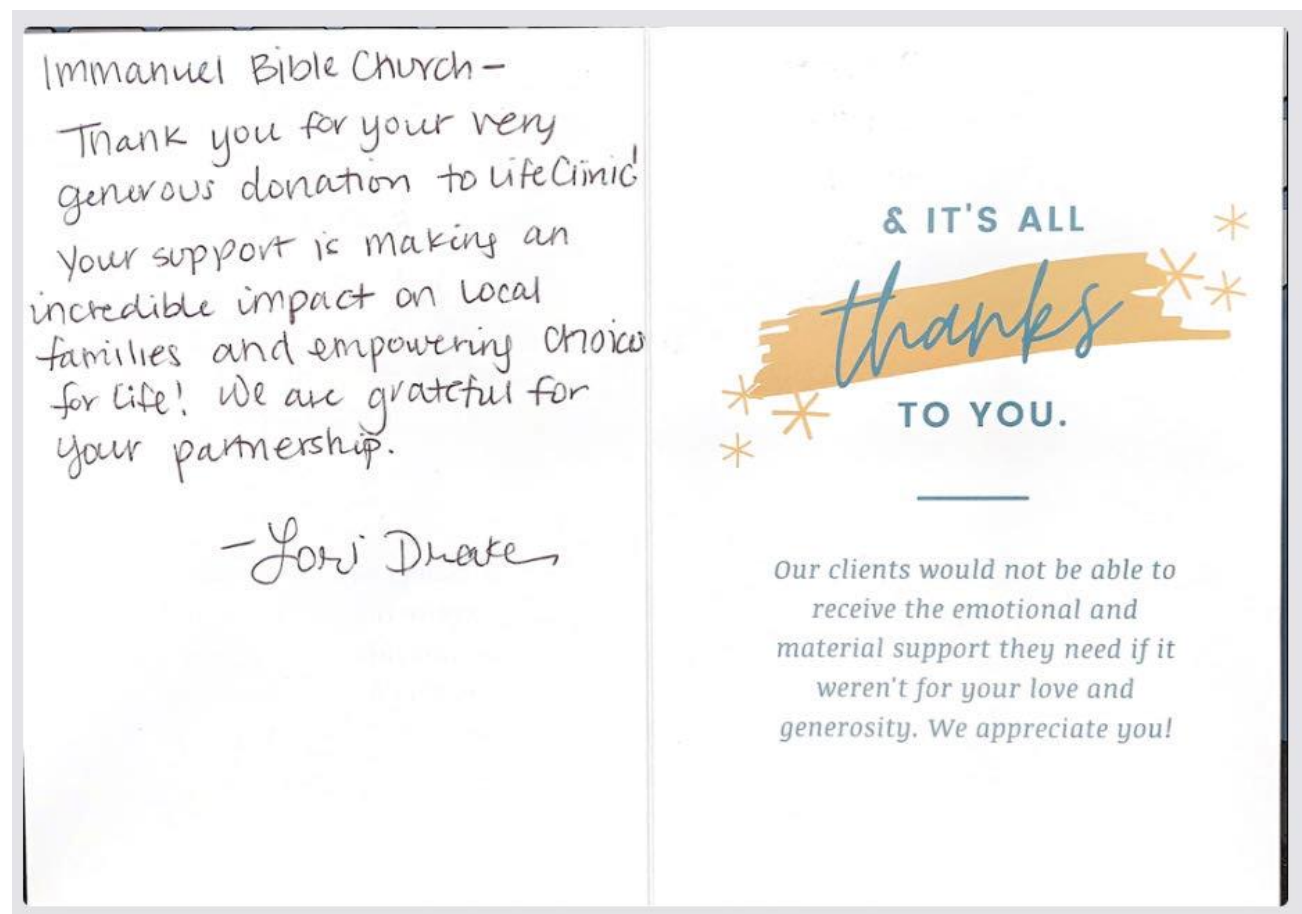 Immanuel Bible Church –
Thank you for your very
generous donation to LifeClinic!
Your support is making an
incredible impact on local
families and empowering choices
for life! We are grateful for
your partnership.
– Lori Drake
& IT'S ALL
thanks
TO YOU.
Our clients would not be able to
receive the emotional and
material support they need if it
weren't for your love and
generosity. We appreciate you!